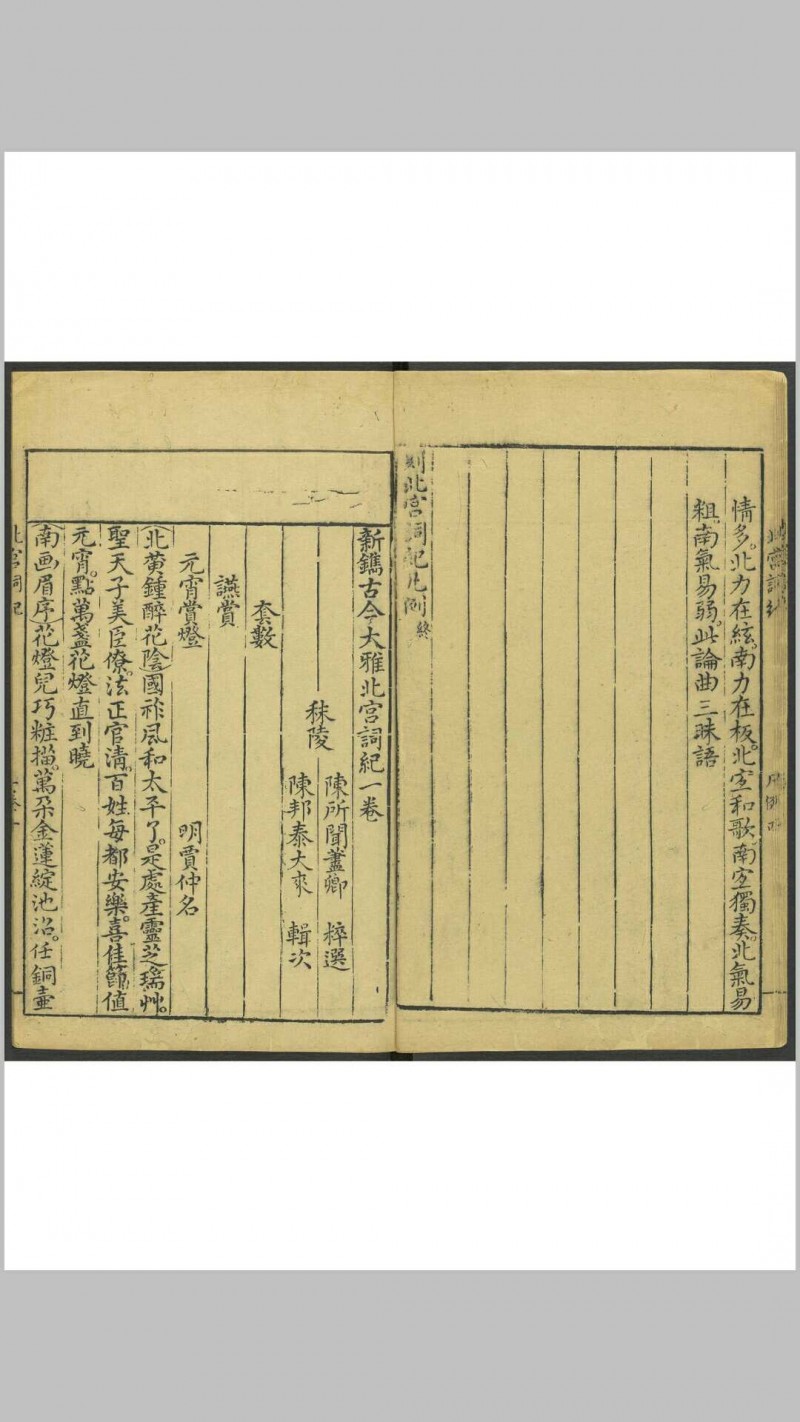 情多。北力在絃。南力在板。北宜和歌。南宜獨奏。北氣易
粗。南氣易弱。此論曲三昧語
刻北宮詞紀凡例 終
新鐫古今大雅北宮詞紀一卷
秣陵
陳所聞藎卿 粹選
陳邦泰大來 輯次
套數
讌賞
元宵賞燈 明賈仲名
(北黃鍾醉花陰)國祚風和太平了。是處產靈芝瑞艸。
聖天子美臣僚。法正官淸。百姓每都安樂。喜佳節值
元宵。點萬盞花燈直到曉
(南画眉序)花燈兒巧粧描。萬朶金蓮綻池沼。任銅壺
北宮詞紀